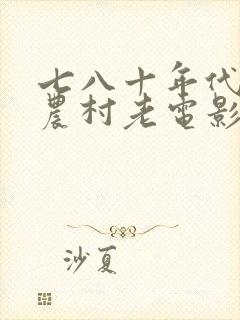 七八十年代
農村老電影
沙夏